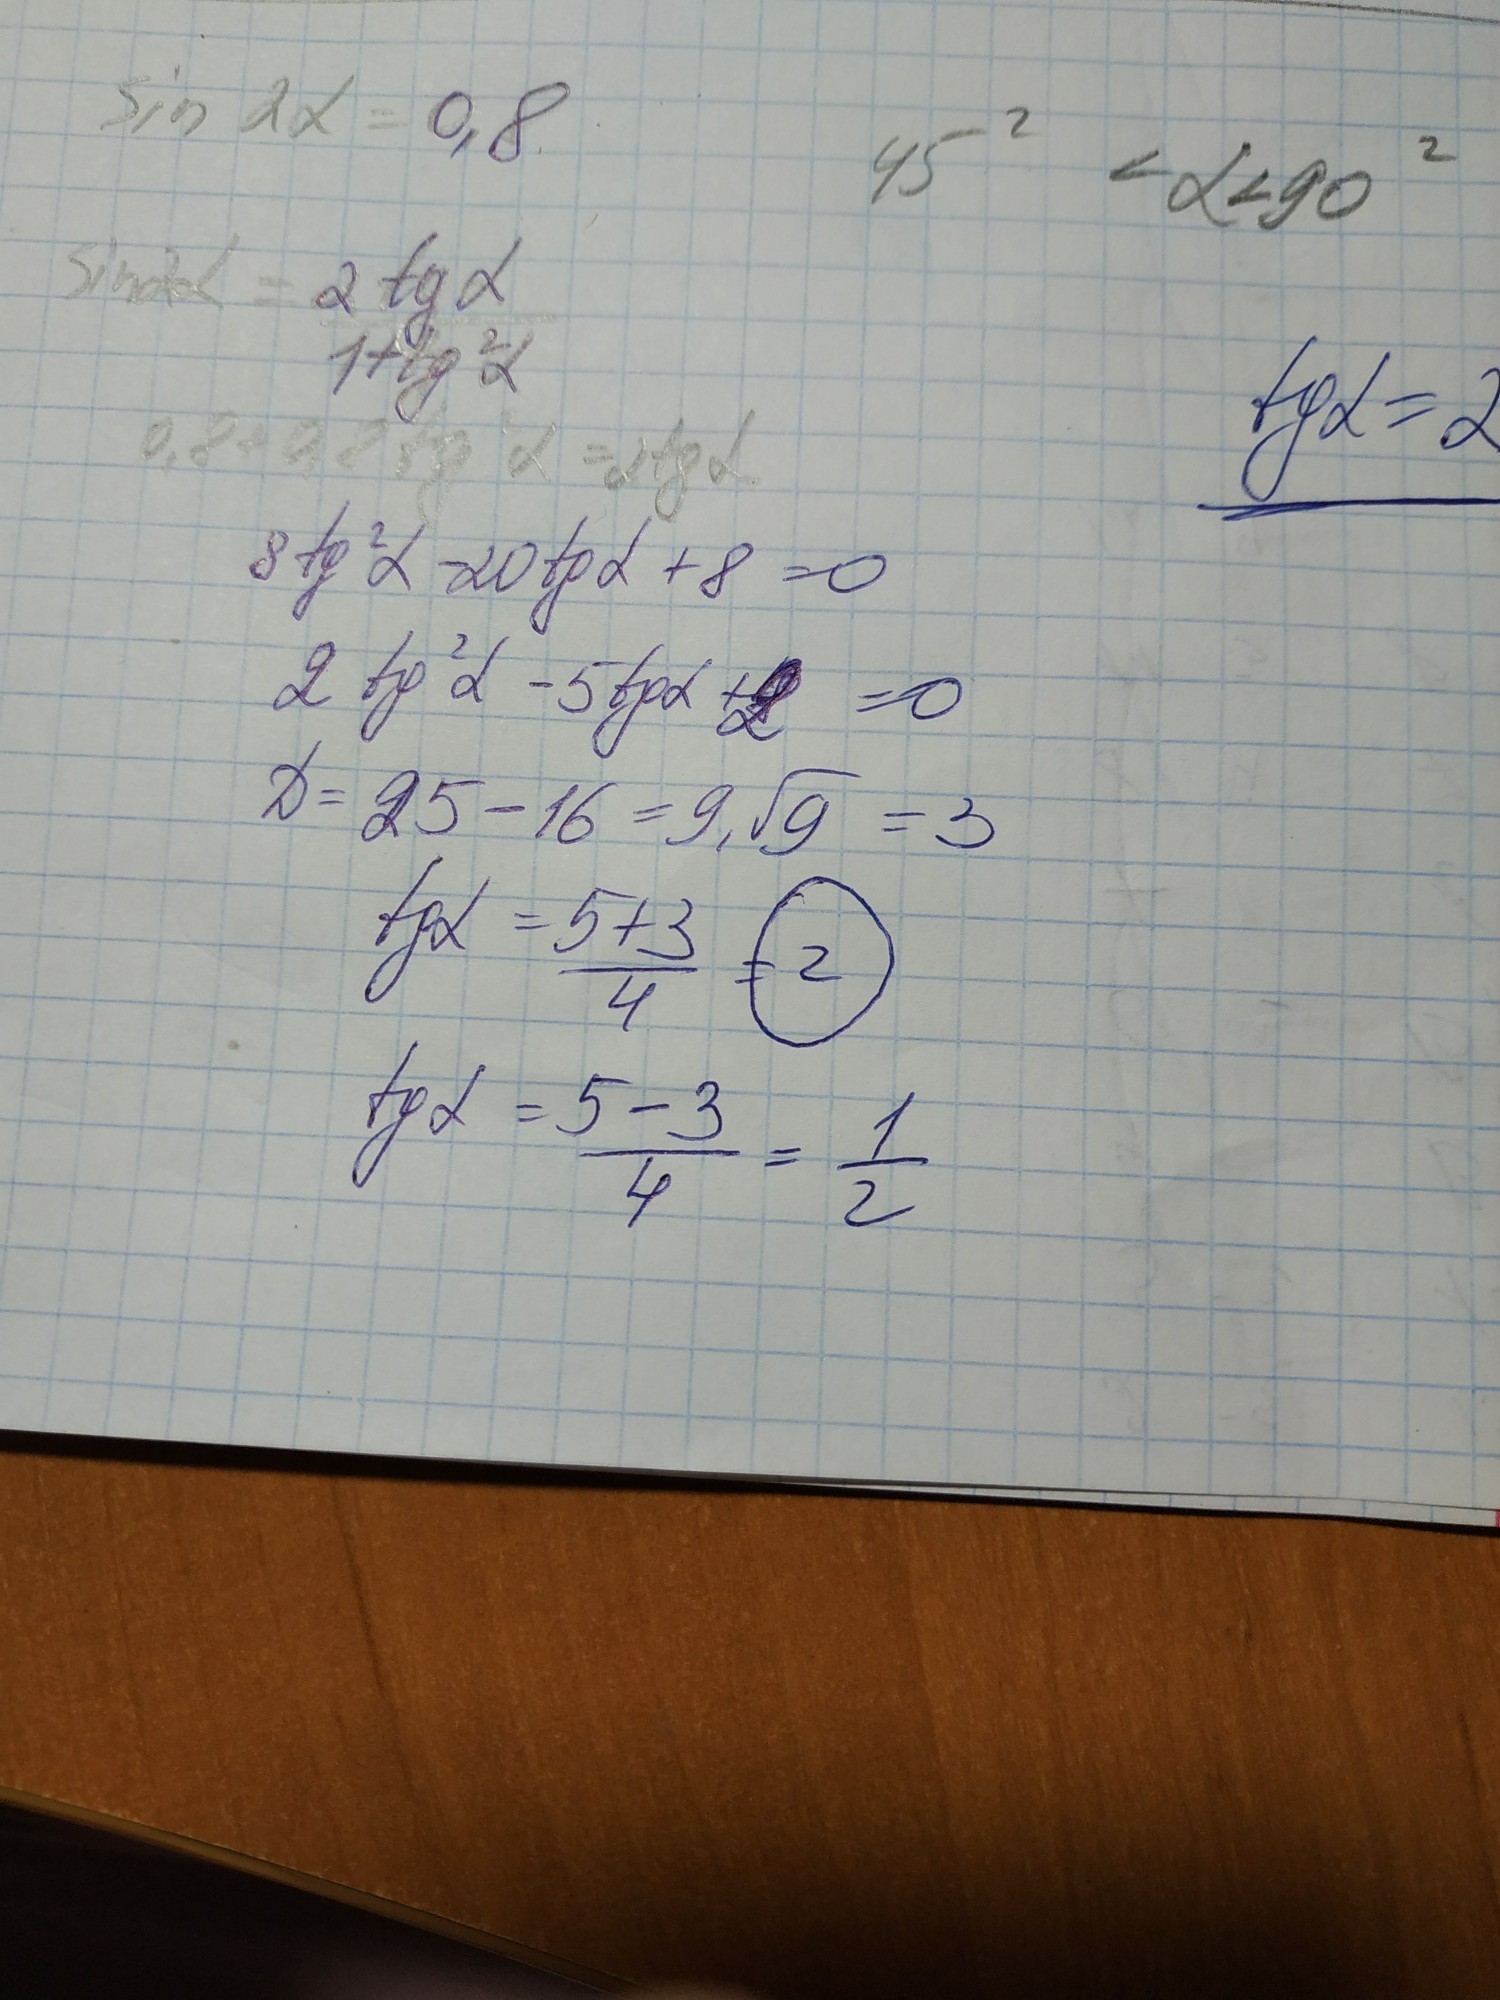 sin 2α = 0,8
45² < α < 90²
sin2α = 2 tg α / 1+tg²α
tgα = 2
0,8+0,8 tg²α = 2tgα
8tg²α -20tgα + 8 = 0
2 tg²α - 5tgα + 2 = 0
D = 25 - 16 = 9, √9 = 3
tgα = 5+3 / 4 = 2
tgα = 5-3 / 4 = 1/2